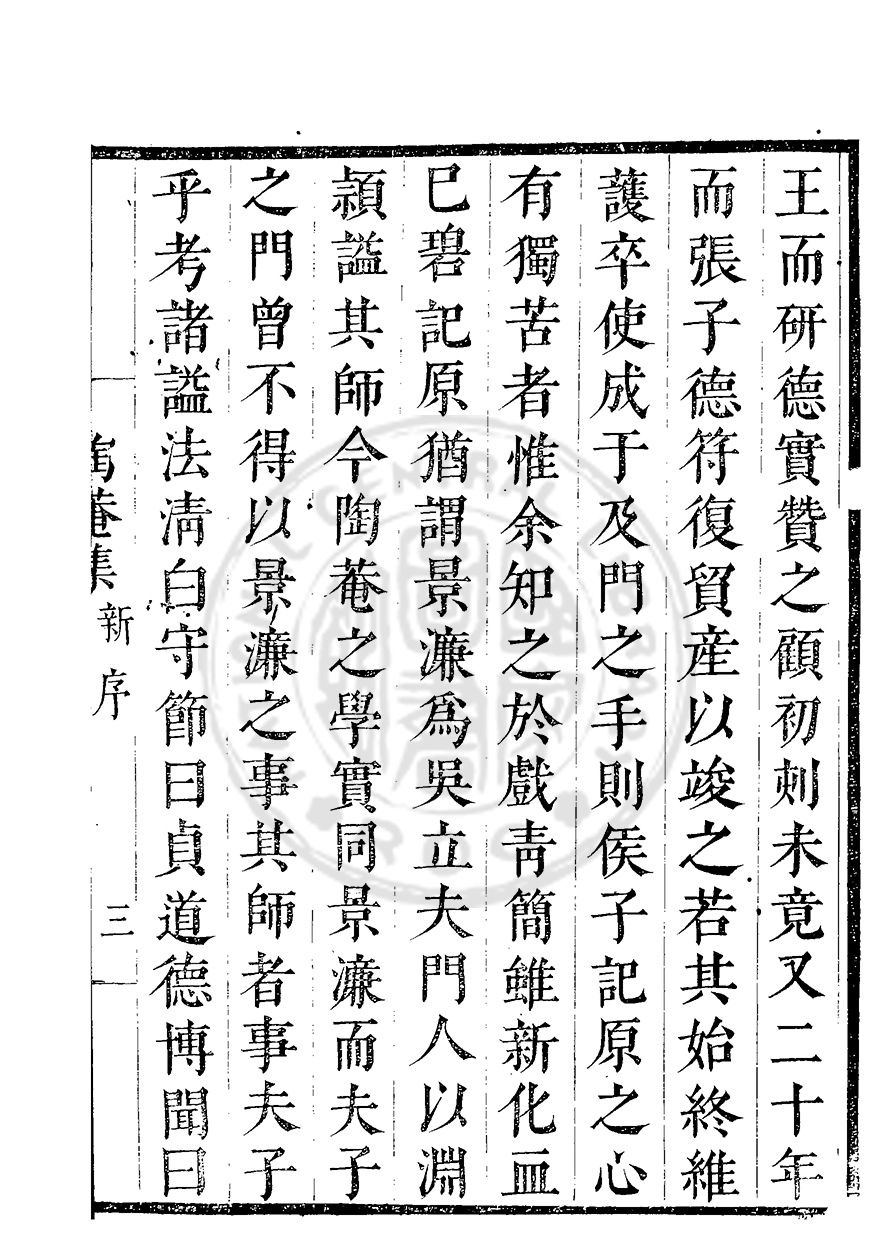 王而研德實贊之顧初刻未竟又二十年
而張子德符復貿産以竣之若其始終維
護卒使成于及門之手則侯子記原之心
有獨苦者惟余知之於戲靑簡雖新化血
已碧記原猶謂景濂爲吳立夫門人以淵
頴謚其師今陶菴之學實同景濂而夫子
之門曾不得以景濂之事其師者事夫子
乎考諸謚法淸白守節曰貞道德博聞曰
陶菴集
新序
三